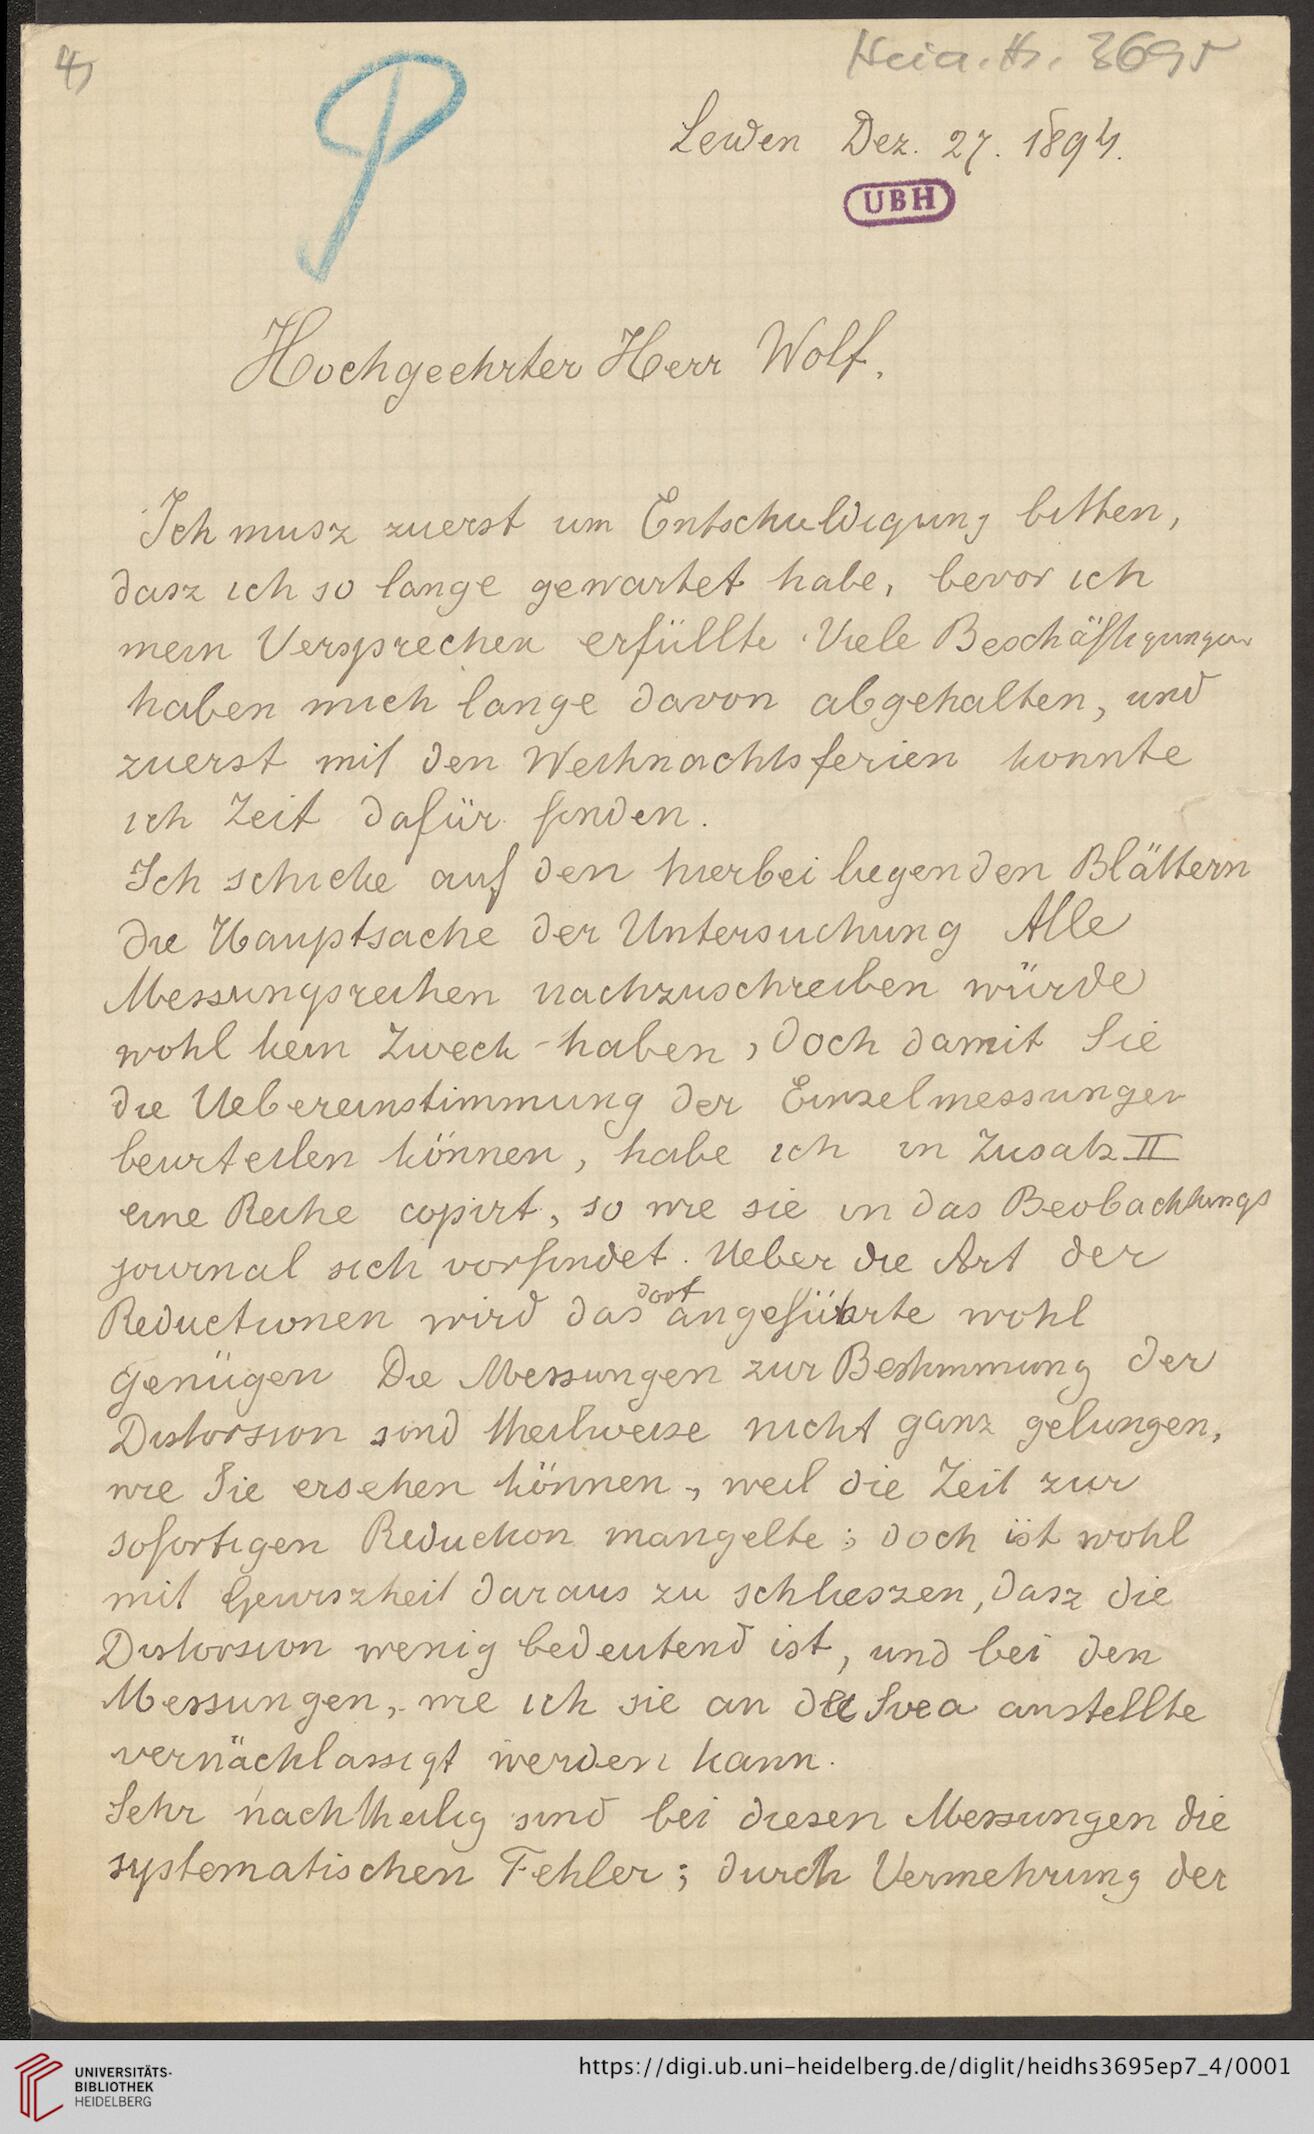 4)
Heid. Hs. 3695
Leiden Dez. 27. 1894.
UBH
Hochgeehrter Herr Wolf,
Ich musz zuerst um Entschuldigung bitten,
dasz ich so lange gewartet habe, bevor ich
mein Versprechen erfüllte. Viele Beschäftigungen
haben mich lange davon abgehalten, und
zuerst mit den Weihnachtsferien konnte
ich Zeit dafür finden.
Ich schicke auf den hierbei liegenden Blättern
die Hauptsache der Untersuchung Alle
Messungsreihen nachzuschreiben würde
wohl kein Zweck haben, doch damit Sie
die Uebereinstimmung der Einzelmessungen
beurteilen können, habe ich in Zusatz II
eine Reihe copirt, so wie sie in das Beobachtungs
journal sich vorfindet. Ueber die Art der
Reductionen wird das dort angeführte wohl
genügen Die Messungen zur Bestimmung der
Distorsion sind theilweise nicht ganz gelungen,
wie Sie ersehen können, weil die Zeit zur
sofortigen Reduction mangelte; doch ist wohl
mit Gewiszheit daraus zu schlieszen, dasz die
Distorsion wenig bedeutend ist, und bei den
Messungen, wie ich sie an die Svea anstellte
vernächlassigt werden kann.
Sehr nachtheilig sind bei diesen Messungen die
systematischen Fehler; durch Vermehrung der
UNIVERSITÄTS-
BIBLIOTHEK
HEIDELBERG
https://digi.ub.uni-heidelberg.de/diglit/heidhs3695ep7_4/0001